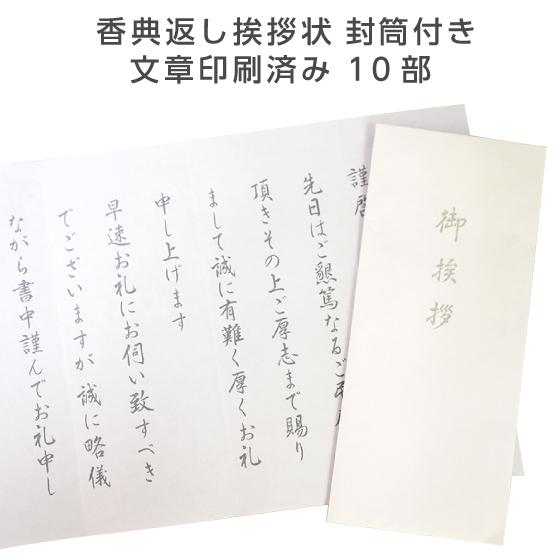 香典返し挨拶状 封筒付き
文章印刷済み 10部
謹啓
先日はご懇篤なるご弔
頂きその上ご厚志まで賜り
まして誠に有難く厚くお礼
申し上げます
早速お礼にお伺い致すべき
でございますが誠に略儀
ながら書中謹んでお礼申し
御挨拶